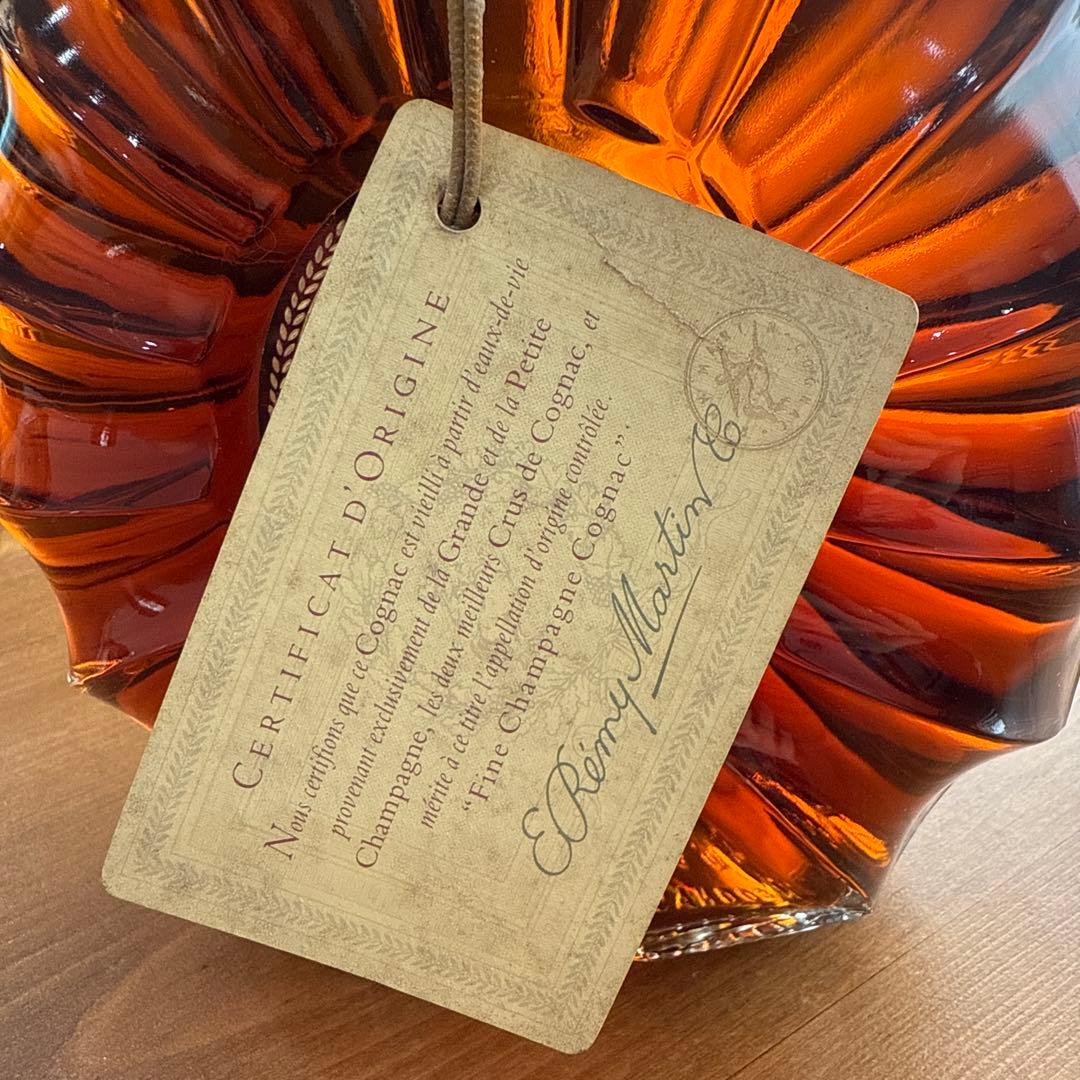 CERTIFICAT D'ORIGINE
Nous certifions que ce Cognac est vieilli à partir d'eaux-de-vie
provenant exclusivement de la Grande et de la Petite
Champagne, les deux meilleurs Crus de Cognac, et
mérite à ce titre l'appellation d'origine contrôlée.
“Fine Champagne Cognac”.
E Rémy Martin & C